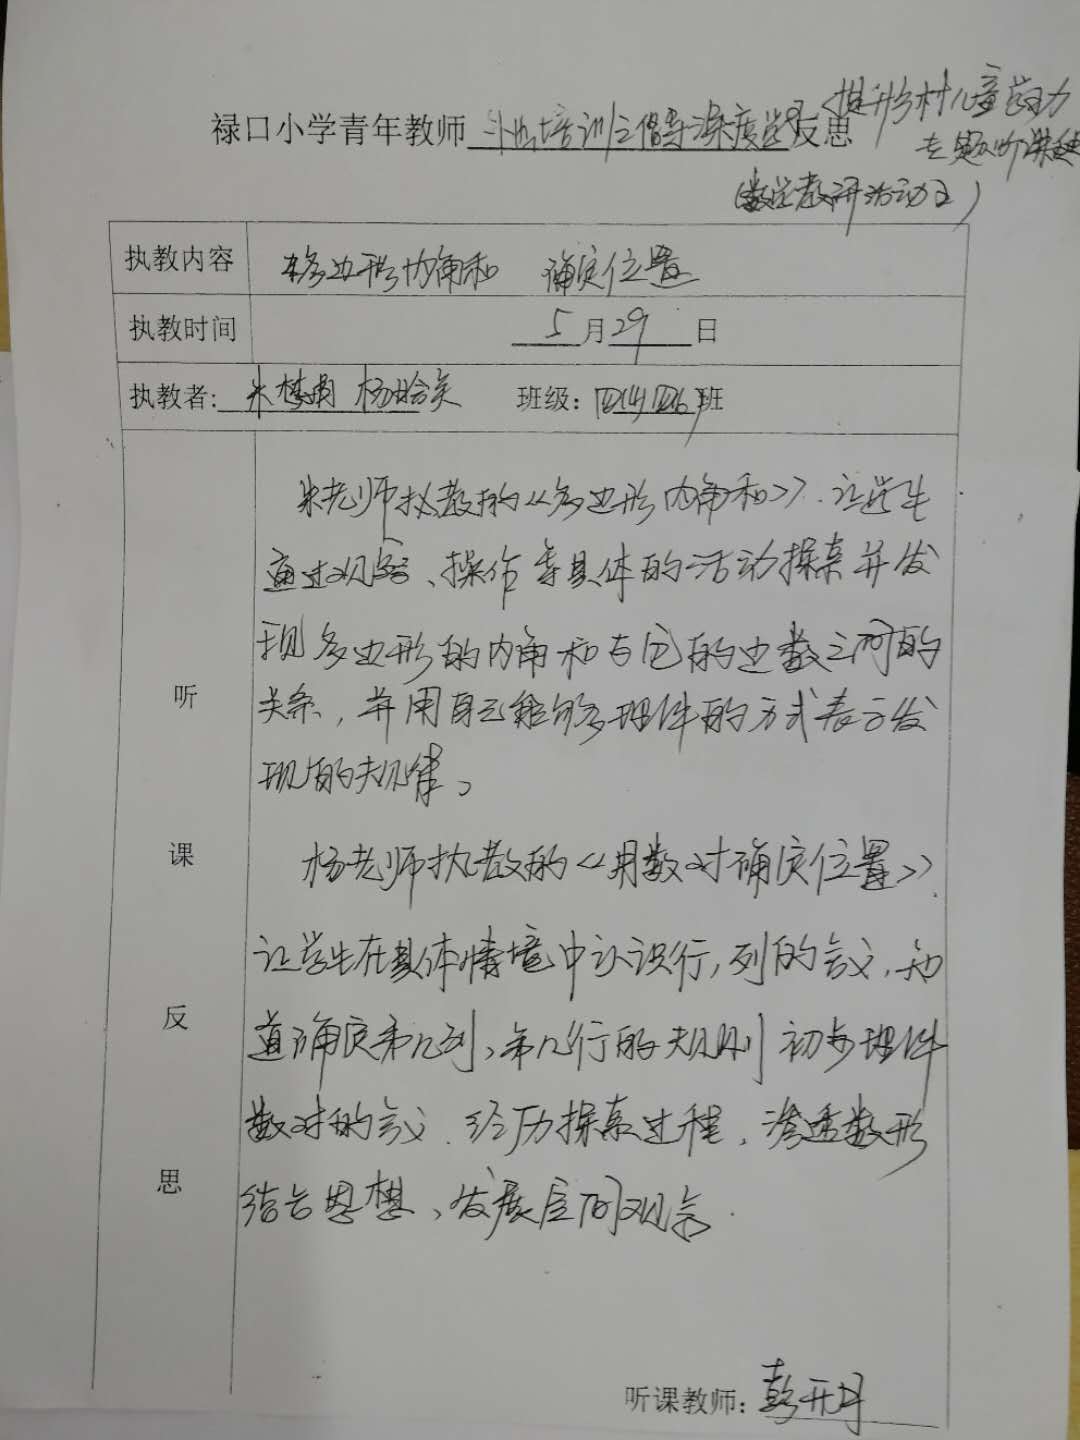 提升乡村儿童学力
禄口小学青年教师 外出培训之倡导深度学习 反思
专题听课
(数学教研活动)
执教内容 多边形内角和 确定位置
执教时间 5月29日
执教者: 朱梦娟 杨 班级: 班
朱老师执教的《多边形内角和》.让学生
通过观察、操作等具体的活动探索并发
现多边形的内角和与它的边数之间的
关系,并用自己能够理解的方式表示发
现的规律。
杨老师执教的《用数对确定位置》
让学生在具体情境中认识行,列的含义,知
道确定第几列、第几行的规则 初步理解
数对的含义.经历探索过程,渗透数形
结合思想、发展空间观念.
听
课
反
思
听课教师: 彭开月